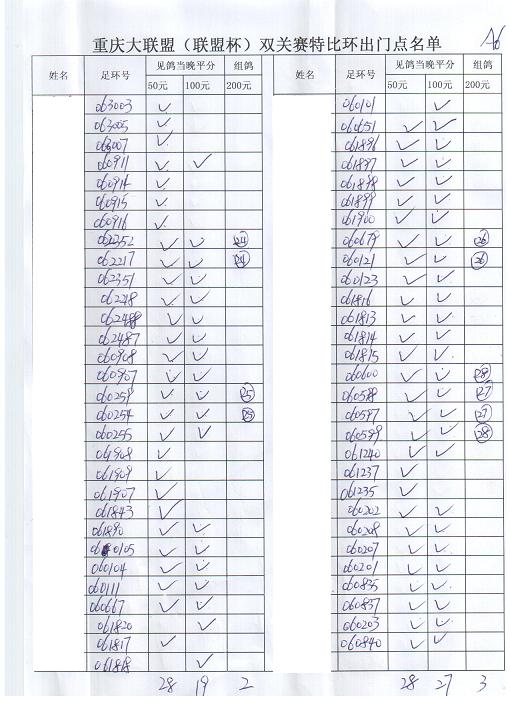 A6
重庆大联盟（联盟杯）双关赛特比环出门点名单
姓名 足环号 见鸽当晚平分 组鸽 姓名 足环号 见鸽当晚平分 组鸽
50元 100元 200元 50元 100元 200元
063003 ✓ 060101 ✓
063005 ✓ 060651 ✓ ✓
063007 ✓ 061896 ✓ ✓
060911 ✓ ✓ 061897 ✓ ✓
060914 ✓ 061898 ✓ ✓
060915 ✓ 061899 ✓ ✓
060916 ✓ 061900 ✓ ✓
062352 ✓ ✓ 24 060679 ✓ ✓ 26
062217 ✓ ✓ 24 060121 ✓ ✓ 26
062351 ✓ ✓ 060123 ✓ ✓
062218 ✓ ✓ 061816 ✓ ✓
062488 ✓ ✓ 061813 ✓ ✓
062487 ✓ ✓ 061814 ✓ ✓
060908 ✓ ✓ 061815 ✓ ✓
060907 ✓ ✓ 060600 ✓ ✓ 28
060259 ✓ ✓ 25 060588 ✓ ✓ 27
060254 ✓ ✓ 25 060597 ✓ ✓ 27
060255 ✓ ✓ 060599 ✓ ✓ 28
061908 ✓ 061240 ✓ ✓
061909 ✓ 061237 ✓
061907 ✓ 061235 ✓
061843 ✓ 060202 ✓ ✓
061890 ✓ ✓ 060208 ✓ ✓
060105 ✓ ✓ 060207 ✓ ✓
060104 ✓ ✓ 060201 ✓ ✓
060111 ✓ ✓ 060835 ✓ ✓
060667 ✓ ✓ 060837 ✓ ✓
061820 ✓ 060203 ✓ ✓
061817 ✓ 060840 ✓ ✓
061818 ✓
28 19 2 28 27 3